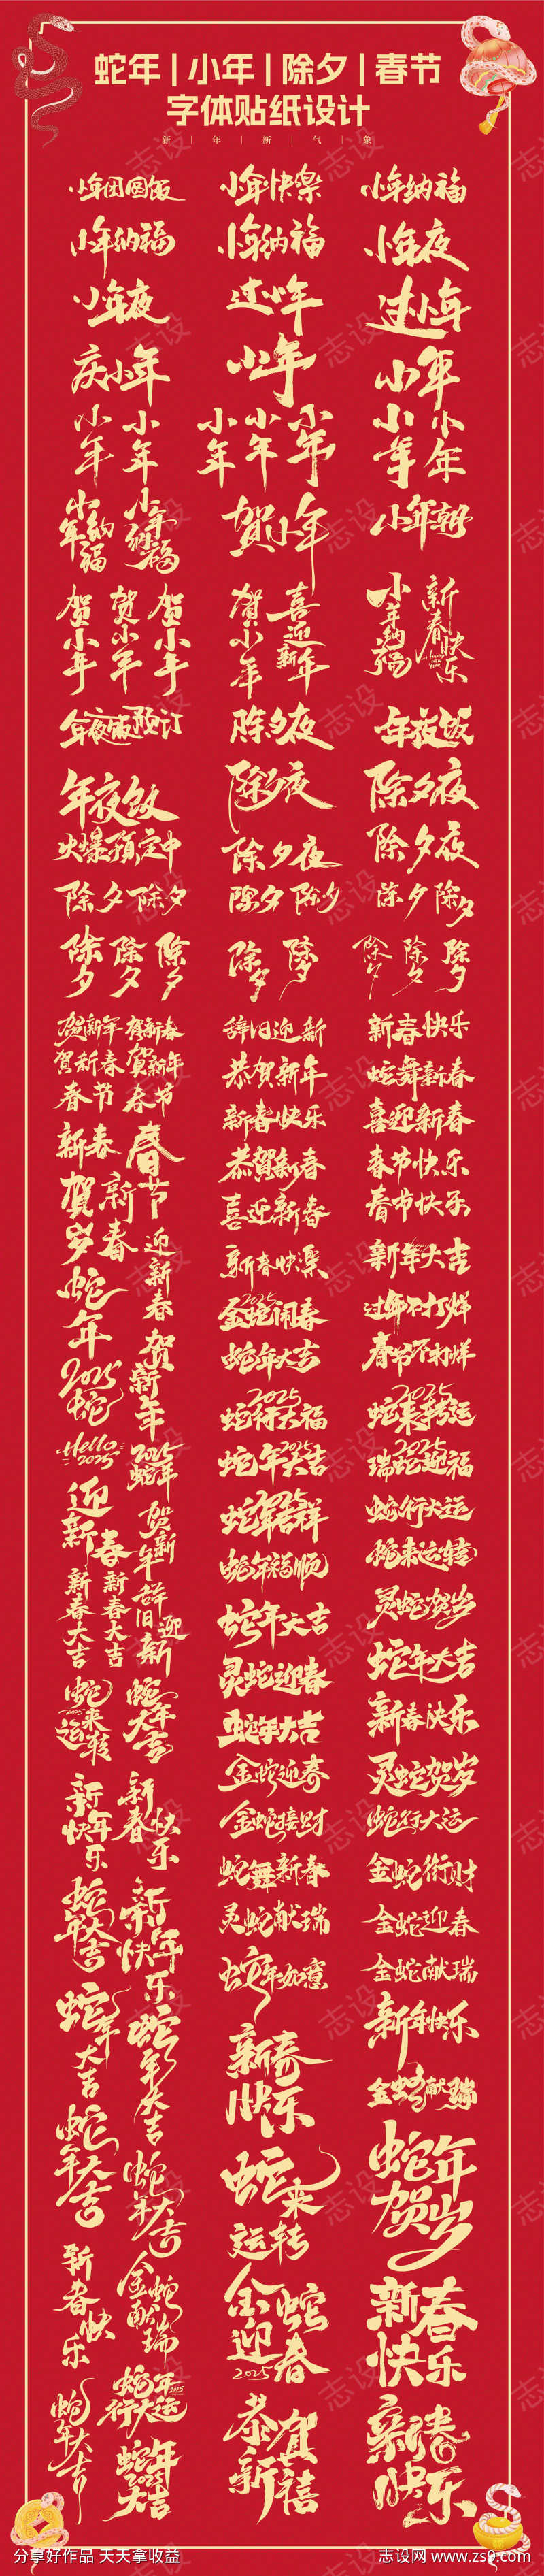 蛇年|小年|除夕|春节
字体贴纸设计
新 | 年 | 新 | 气 | 象
小年团圆饭 小年快樂 小年纳福
小年纳福 小年纳福 小年夜
小年夜 过小年 过小年
庆小年 小年 小年
小年 小年 小年 小年 小年 小年 小年
小年纳福 小年纳福 贺小年 小年
贺小年 贺小年 贺小年 贺小年 喜迎新年 小年纳福 新春快乐
年夜饭预订 除夕夜 年夜饭
年夜饭 除夕夜 除夕夜
火爆预定中 除夕夜 除夕夜
除夕 除夕 除夕 除夕 除夕 除夕
除夕 除夕 除夕 除夕 除夕 除夕 除夕 除夕
贺新年 贺新春 辞旧迎新 新春快乐
贺新春 賀新年 恭贺新年 蛇舞新春
春节 春节 新春快乐 喜迎新春
新春 春节 恭贺新春 春节快乐
贺新岁春 喜迎新春 春节快乐
迎新春 新春快樂 新年大吉
蛇年 金蛇闹春 2025 过年不打烊
贺新年 蛇年大吉 春节不打烊
2025 蛇 2025 蛇行大福 2025 蛇来转运
Hello 2025 2025 蛇年 蛇年大吉 2025 瑞蛇迎福 2025
迎新春 贺新年 蛇年吉祥 2025 蛇行大运
新春大吉 新春大吉 辞旧迎新 蛇年福顺 蛇来运转
蛇年大吉 灵蛇贺岁
蛇来运转 2025 蛇年大吉 灵蛇迎春 蛇年大吉
蛇年大吉 新春快乐
新年快乐 新春快乐 金蛇迎春 灵蛇贺岁
金蛇接财 蛇行大运
蛇年大吉 新年快乐 蛇舞新春 金蛇衔财
灵蛇献瑞 金蛇迎春
蛇年大吉 蛇年大吉 蛇年如意 金蛇献瑞
新春快乐 新年快乐
金蛇献瑞
蛇年大吉 蛇年大吉 蛇来运转 蛇年贺岁
新春快乐 金蛇献瑞 金蛇迎春 2025 新春快乐
蛇年大吉 蛇年行大运 2025 恭贺新禧 新春快乐
蛇年大吉 2025
分享好作品 天天拿收益
志设网 www.zs9.com
志设